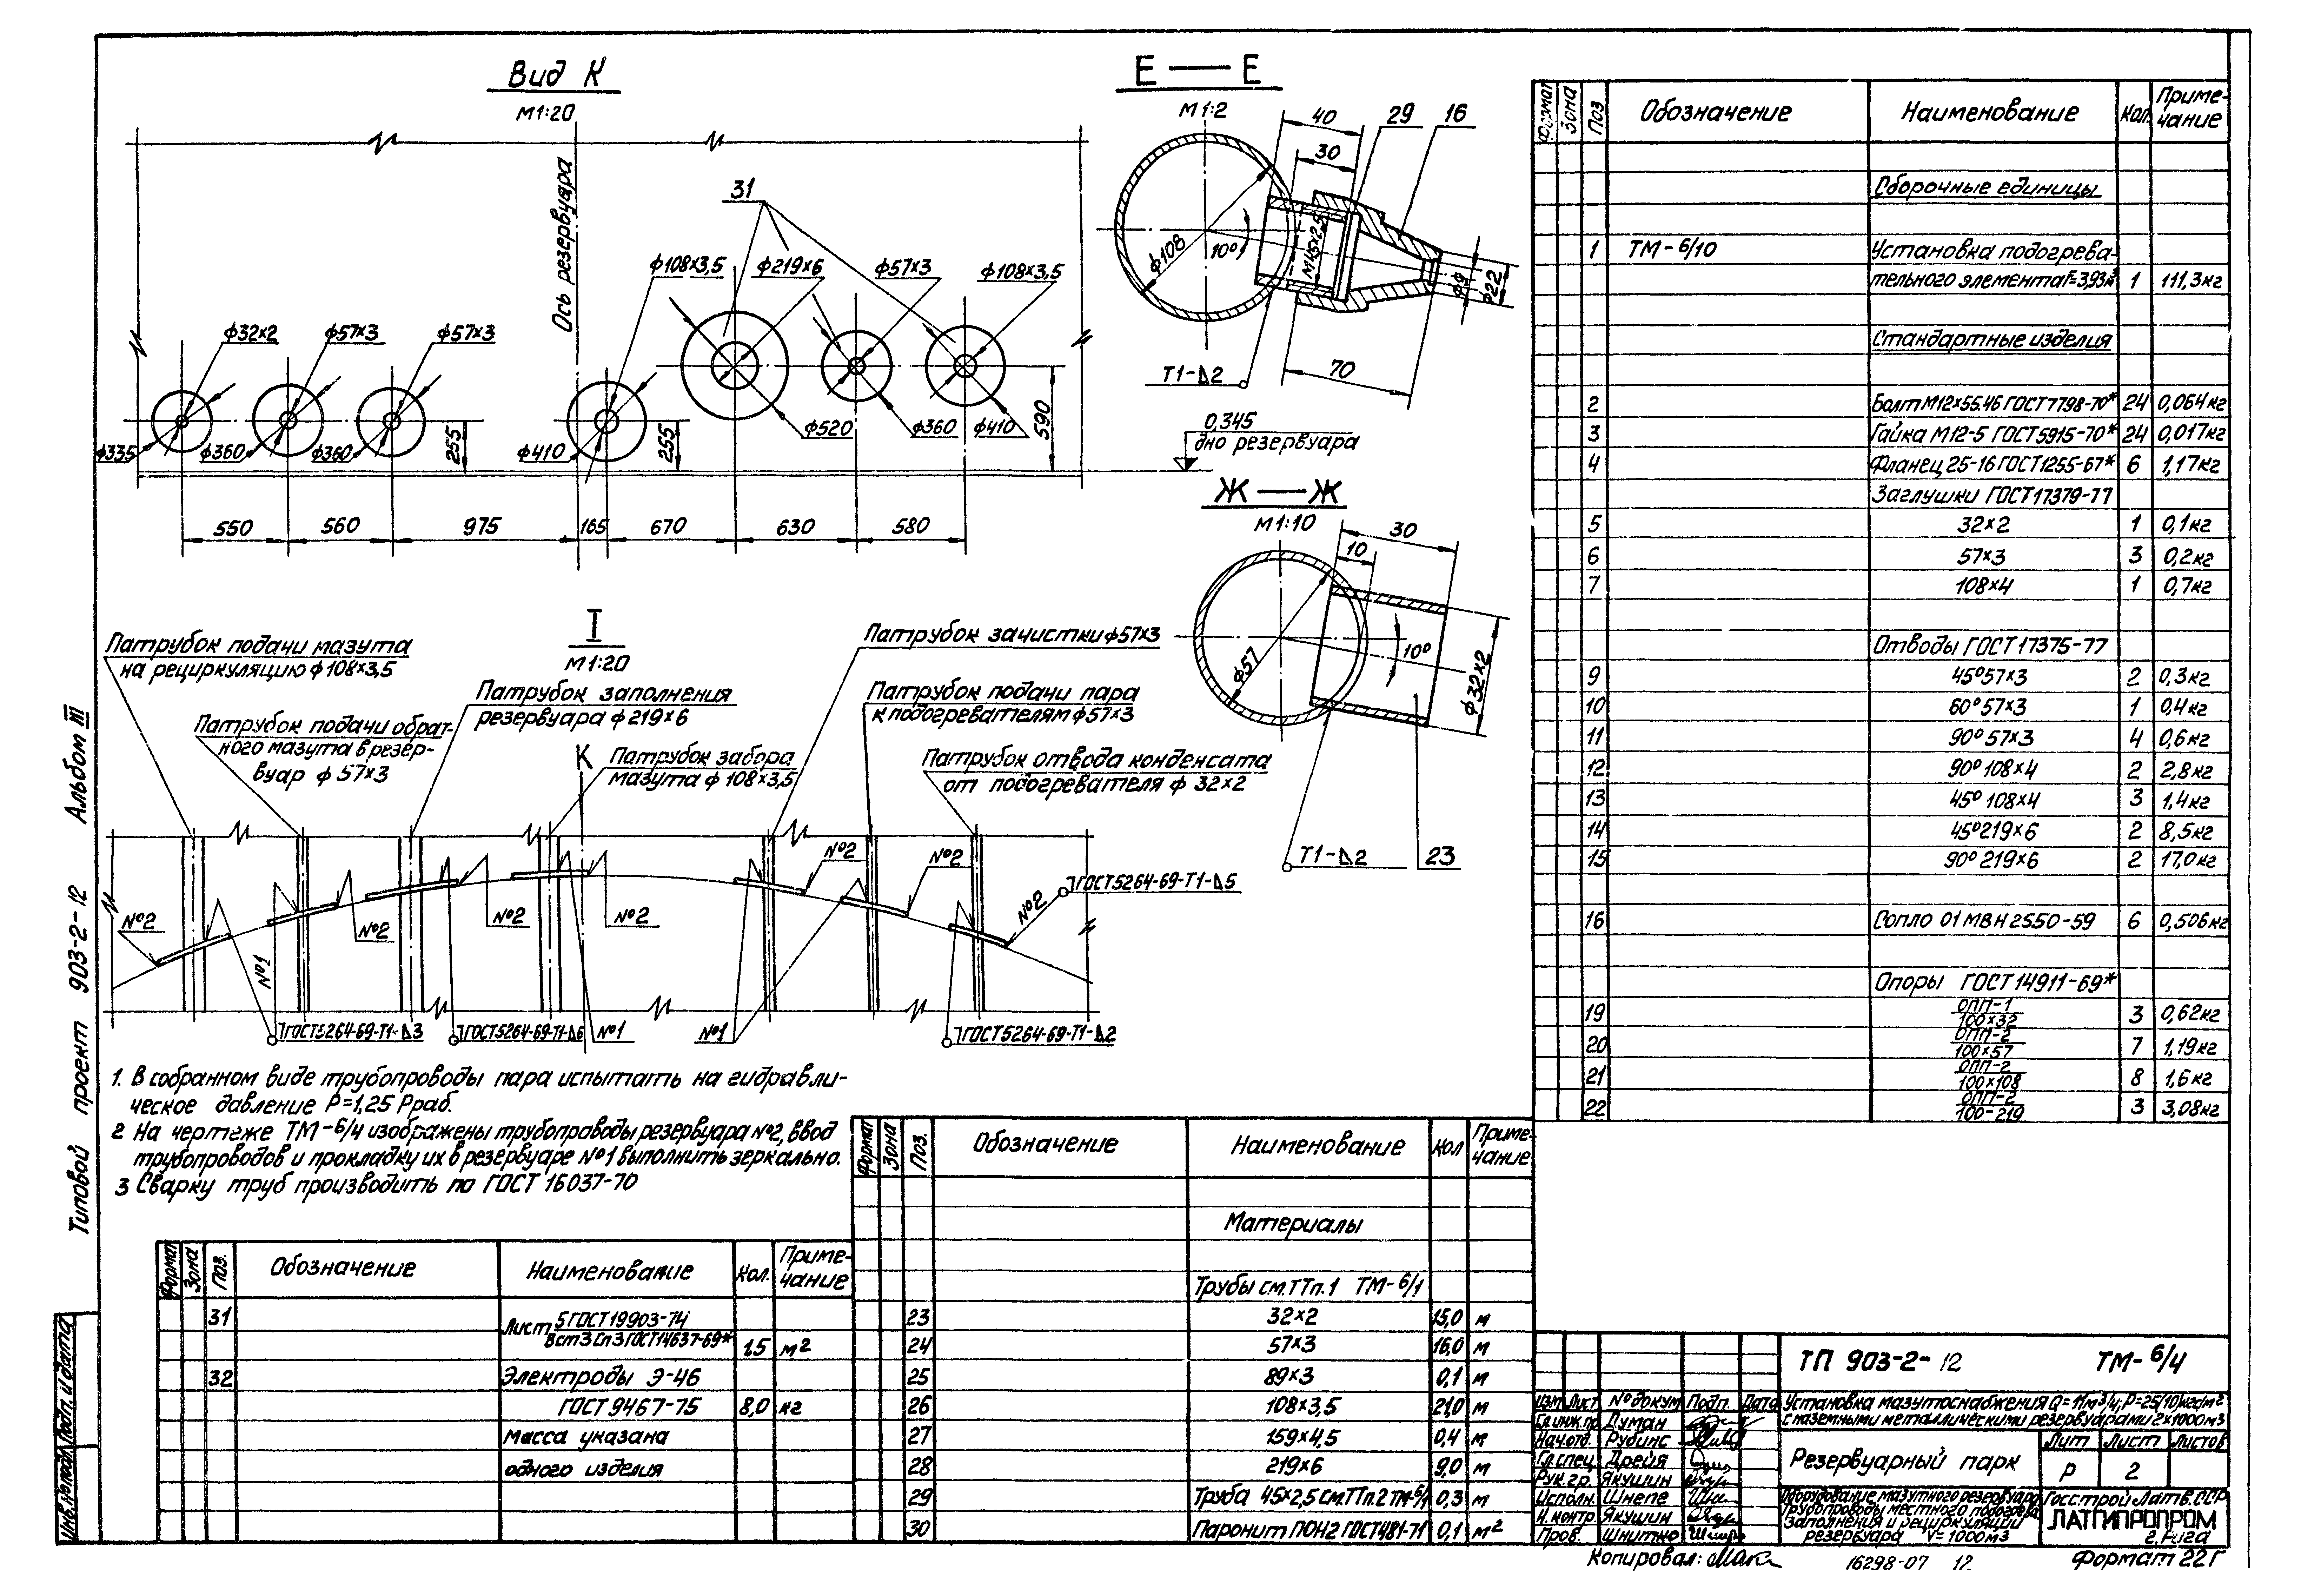 Вид К
М1:20
Ось резервуара
31
ф108×3,5
ф219×6
ф57×3
ф108×3,5
ф32×2
ф57×3
ф57×3
ф335
ф360
ф360
255
ф410
255
ф520
ф360
ф410
590
550
560
975
165
670
630
580
Е — Е
М1:2
40
29
16
30
ф108
10°
М45×2,5
ф9
ф22
Т1-⊿2
70
0,345
дно резервуара
Ж — Ж
М1:10
30
10
ф57
10°
ф32×2
Т1-⊿2
23
I
М1:20
Патрубок подачи мазута
на рециркуляцию ф108×3,5
Патрубок подачи обрат-
ного мазута в резер-
вуар ф57×3
Патрубок заполнения
резервуара ф219×6
К
Патрубок забора
мазута ф108×3,5
Патрубок зачистки ф57×3
Патрубок подачи пара
к подогревателям ф57×3
Патрубок отвода конденсата
от подогревателя ф 32×2
№2
№1
№2
№2
№2
№2
№2
№2
ГОСТ5264-69-Т1-⊿5
ГОСТ5264-69-Т1-⊿3
ГОСТ5264-69-Т1-⊿6
№1
№1
ГОСТ5264-69-Т1-⊿2
1. В собранном виде трубопроводы пара испытать на гидравли-
ческое давление Р=1,25 Рраб.
2 На чертеже ТМ-6/4 изображены трубопроводы резервуара №2, ввод
трубопроводов и прокладку их в резервуаре №1 выполнить зеркально.
3 Сварку труб производить по ГОСТ 16037-70
Формат Зона Поз Обозначение Наименование Кол. Приме-чание
Сборочные единицы
1 ТМ-6/10 Установка подогрева-
тельного элемента F=3,93м² 1 111,3кг
Стандартные изделия
2 Болт М12×55.46 ГОСТ7798-70* 24 0,064кг
3 Гайка М12-5 ГОСТ5915-70* 24 0,017кг
4 Фланец 25-16 ГОСТ1255-67* 6 1,17кг
Заглушки ГОСТ17379-77
5 32×2 1 0,1кг
6 57×3 3 0,2кг
7 108×4 1 0,7кг
Отводы ГОСТ17375-77
9 45°57×3 2 0,3кг
10 60°57×3 1 0,4кг
11 90°57×3 4 0,6кг
12 90°108×4 2 2,8кг
13 45°108×4 3 1,4кг
14 45°219×6 2 8,5кг
15 90°219×6 2 17,0кг
16 Сопло 01 МВН 2550-59 6 0,506кг
Опоры ГОСТ14911-69*
19 ОПП-1 100×32 3 0,62кг
20 ОПП-2 100×57 7 1,19кг
21 ОПП-2 100×108 8 1,6кг
22 ОПП-2 100-219 3 3,08кг
Формат Зона Поз. Обозначение Наименование Кол Приме-чание
Материалы
Трубы см.ТТп.1 ТМ-6/1
23 32×2 15,0 м
24 57×3 16,0 м
25 89×3 0,1 м
26 108×3,5 21,0 м
27 159×4,5 0,4 м
28 219×6 9,0 м
29 Труба 45×2,5 см.ТТп.2 ТМ-6/1 0,3 м
30 Паронит ПОН2 ГОСТ481-71 0,1 м²
Формат Зона Поз. Обозначение Наименование Кол. Приме-чание
31 Лист 5 ГОСТ19903-74
Вст3 Сп3 ГОСТ14637-69* 1,5 м²
32 Электроды Э-46
ГОСТ 9467-75 8,0 кг
Масса указана
одного изделия
ТП 903-2-12 ТМ-6/4
Изм Лист № докум Подп. Дата
Установка мазутоснабжения Q=11м³/ч; Р=25(10)кгс/м²
с наземными металлическими резервуарами 2×1000м3
Гл.инж.пр Думан
Нач.отд. Рубинс
Гл.спец Дрейя
Рук.гр. Якушин
Исполн. Шнепе
Н.контр Якушин
Пров. Шнитко
Резервуарный парк
Лит Лист Листов
Р 2
Оборудование мазутного резервуара
Трубопроводы местного подогрева,
заполнения и рециркуляции
резервуара V=1000м3
Госстрой Латв.ССР
ЛАТГИПРОПРОМ
г.Рига
Копировал:
16298-07 12
Формат 22Г
Типовой проект 903-2-12 Альбом III
Инв.№подл. Подп. и дата